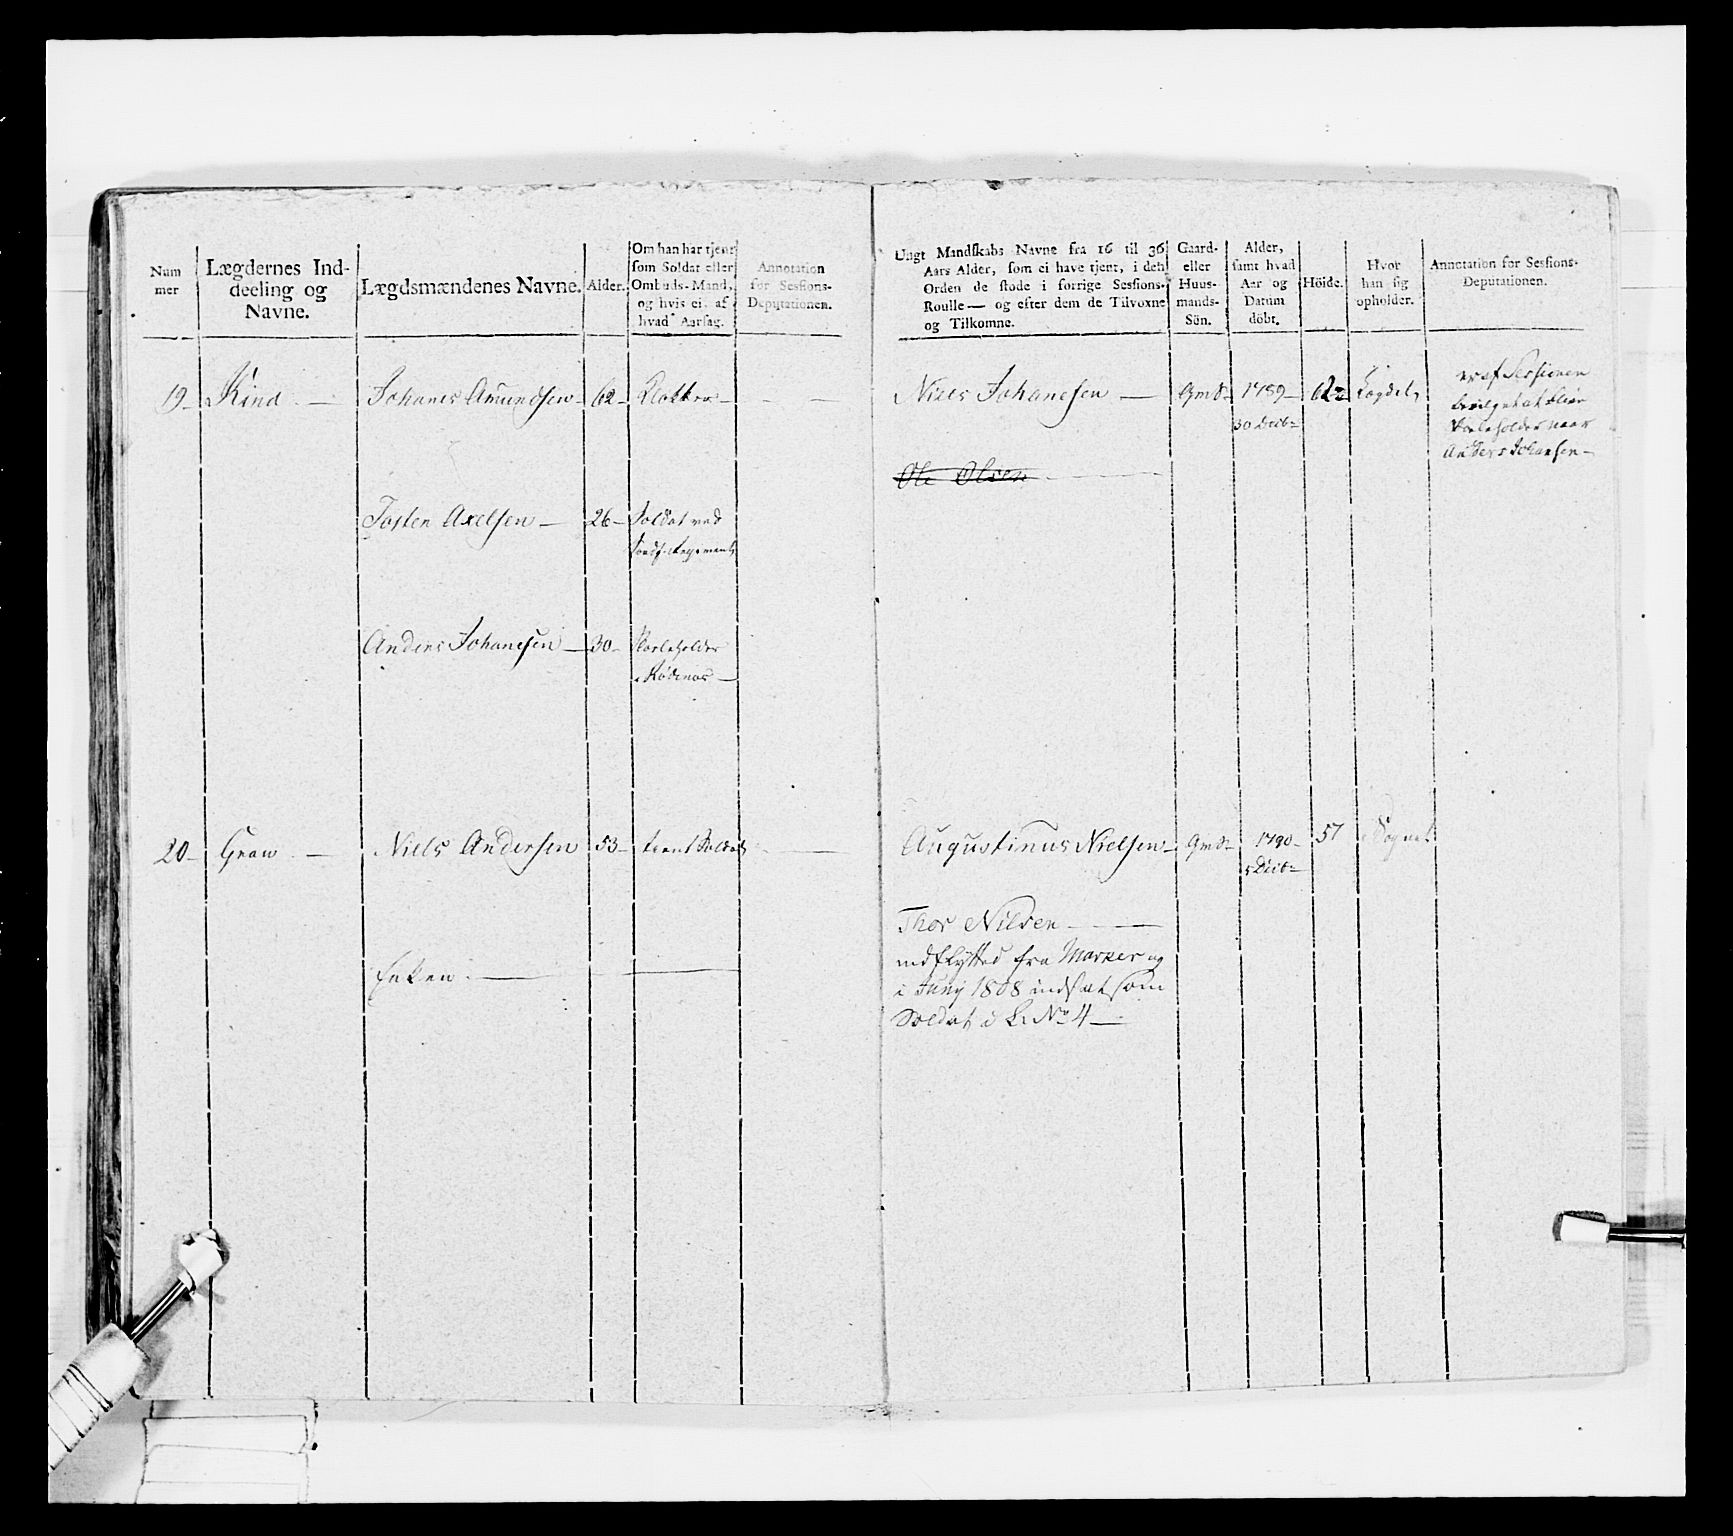 Num
mer
Lægdernes Ind-
deeling og
Navne.
Lægdsmændenes Navne.
Alder.
Om han har tjent
som Soldat eller
Ombuds-Mand,
og hvis ei, af
hvad Aarsag.
Annotation
for Sessions-
Deputationen.
Ungt Mandskabs Navne fra 16 til 36
Aars Alder, som ei have tjent, i den
Orden de stode i forrige Sessions-
Roulle — og efter dem de Tilvoxne
og Tilkomne.
Gaard-
eller
Huus-
mands-
Sön.
Alder,
samt hvad
Aar og
Datum
döbt.
Höide.
Hvor
han sig
opholder.
Annotation for Sessions-
Deputationen.
19 Kind Johanes Amundsen 62 Klokker
Niels Johanesen Gmds 1789 Lægdet
30 Decb
er af Sessionen
bevilget at blive
Skoleholder naar
Anders Johansen
Ole Olsen
Tosten Axelsen 26 Soldat ved
Regiment
Anders Johanesen 30 Skoleholder
i Rødenæs
20 Graw Niels Andersen 53 tient Soldat
Augustinus Nielsen Gmds 1790 57 i Sognet
5 Decb
Thor Nilsen
indflytted fra Marker og
i Junij 1808 indsat som
Soldat i L. No 4
Enken